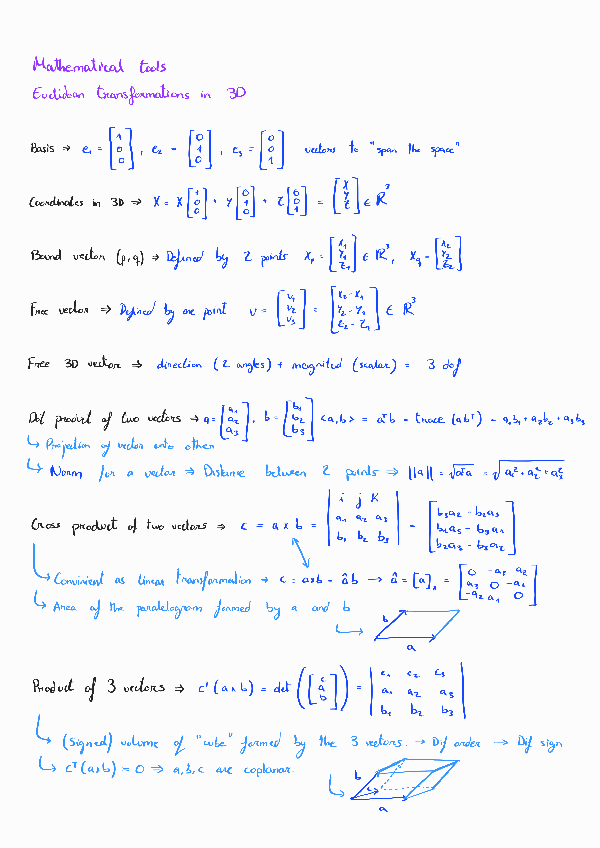 Mathematical tools
Euclidean transformations in 3D
Basis ⇒ e₁ = [1 0 0], e₂ = [0 1 0], e₃ = [0 0 1] vectors to "span the space"
Coordinates in 3D ⇒ X = X [1 0 0] + Y [0 1 0] + Z [0 0 1] = [X Y Z] ∈ ℝ³
Bound vector (p,q) → Defined by 2 points Xₚ = [X₁ Y₁ Z₁] ∈ ℝ³, X_q = [X₂ Y₂ Z₂]
Free vector ⇒ Defined by one point v = [v₁ v₂ v₃] = [X₂ - X₁ Y₂ - Y₁ Z₂ - Z₁] ∈ ℝ³
Free 3D vector ⇒ direction (2 angles) + magnited (scalar) = 3 dof
Dot product of two vectors → a = [a₁ a₂ a₃], b = [b₁ b₂ b₃] <a,b> = aᵀb = trace (abᵀ) = a₁b₁ + a₂b₂ + a₃b₃
↳ Projection of vector onto other
↳ Norm for a vector ⇒ Distance between 2 points ⇒ ||a|| = √aᵀa = √a₁² + a₂² + a₃²
Cross product of two vectors ⇒ c = a x b = |i j K a₁ a₂ a₃ b₁ b₂ b₃| = [b₃a₂ - b₂a₃ b₁a₃ - b₃a₁ b₂a₁ - b₁a₂]
↳ Convinient as linear transformation → c = axb = âb → â = [a]ₓ = [0 -a₃ a₂ a₃ 0 -a₁ -a₂ a₁ 0]
↳ Area of the paralelogram formed by a and b
b
a
Product of 3 vectors ⇒ cᵀ(a x b) = det ([c a b]) = |c₁ c₂ c₃ a₁ a₂ a₃ b₁ b₂ b₃|
↳ (Signed) volume of "cube" formed by the 3 vectors. → Dif order → Dif sign
↳ cᵀ(axb) = 0 ⇒ a,b,c are coplanar.
b
c
a